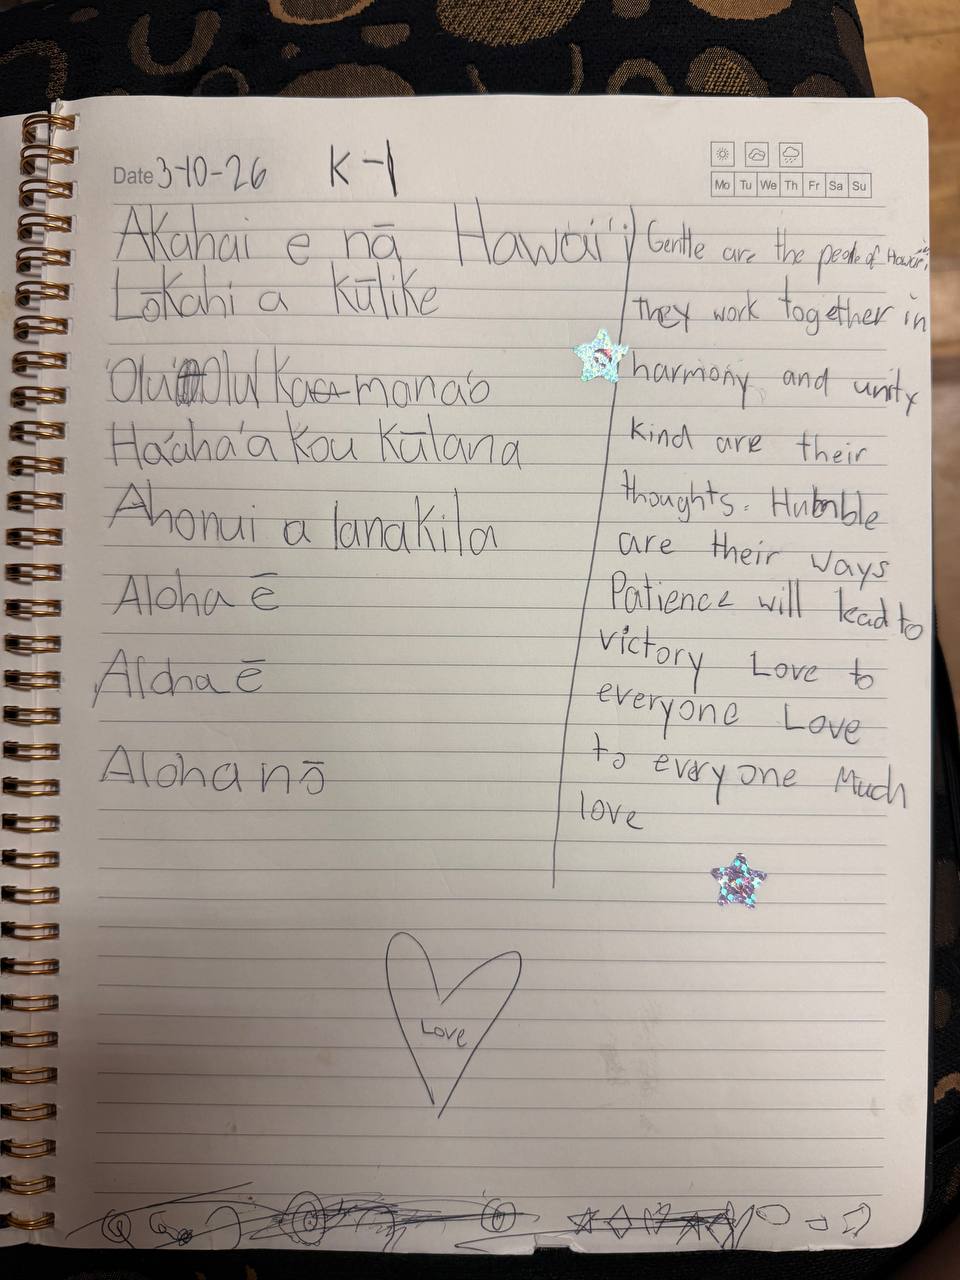 Date 3-10-26 K-1
Mo Tu We Th Fr Sa Su
Akahai e nā Hawai'i
Lōkahi a kūlike
'Olu'Olu ka manaó
Ha'aha'a kou kūlana
Ahonui a lanakila
Aloha ē
Aloha ē
Aloha nō
Gentle are the people of Hawaii,
they work together in
harmony and unity
kind are their
thoughts. Humble
are their ways
Patience will lead to
victory Love to
everyone Love
to everyone Much
love
Love